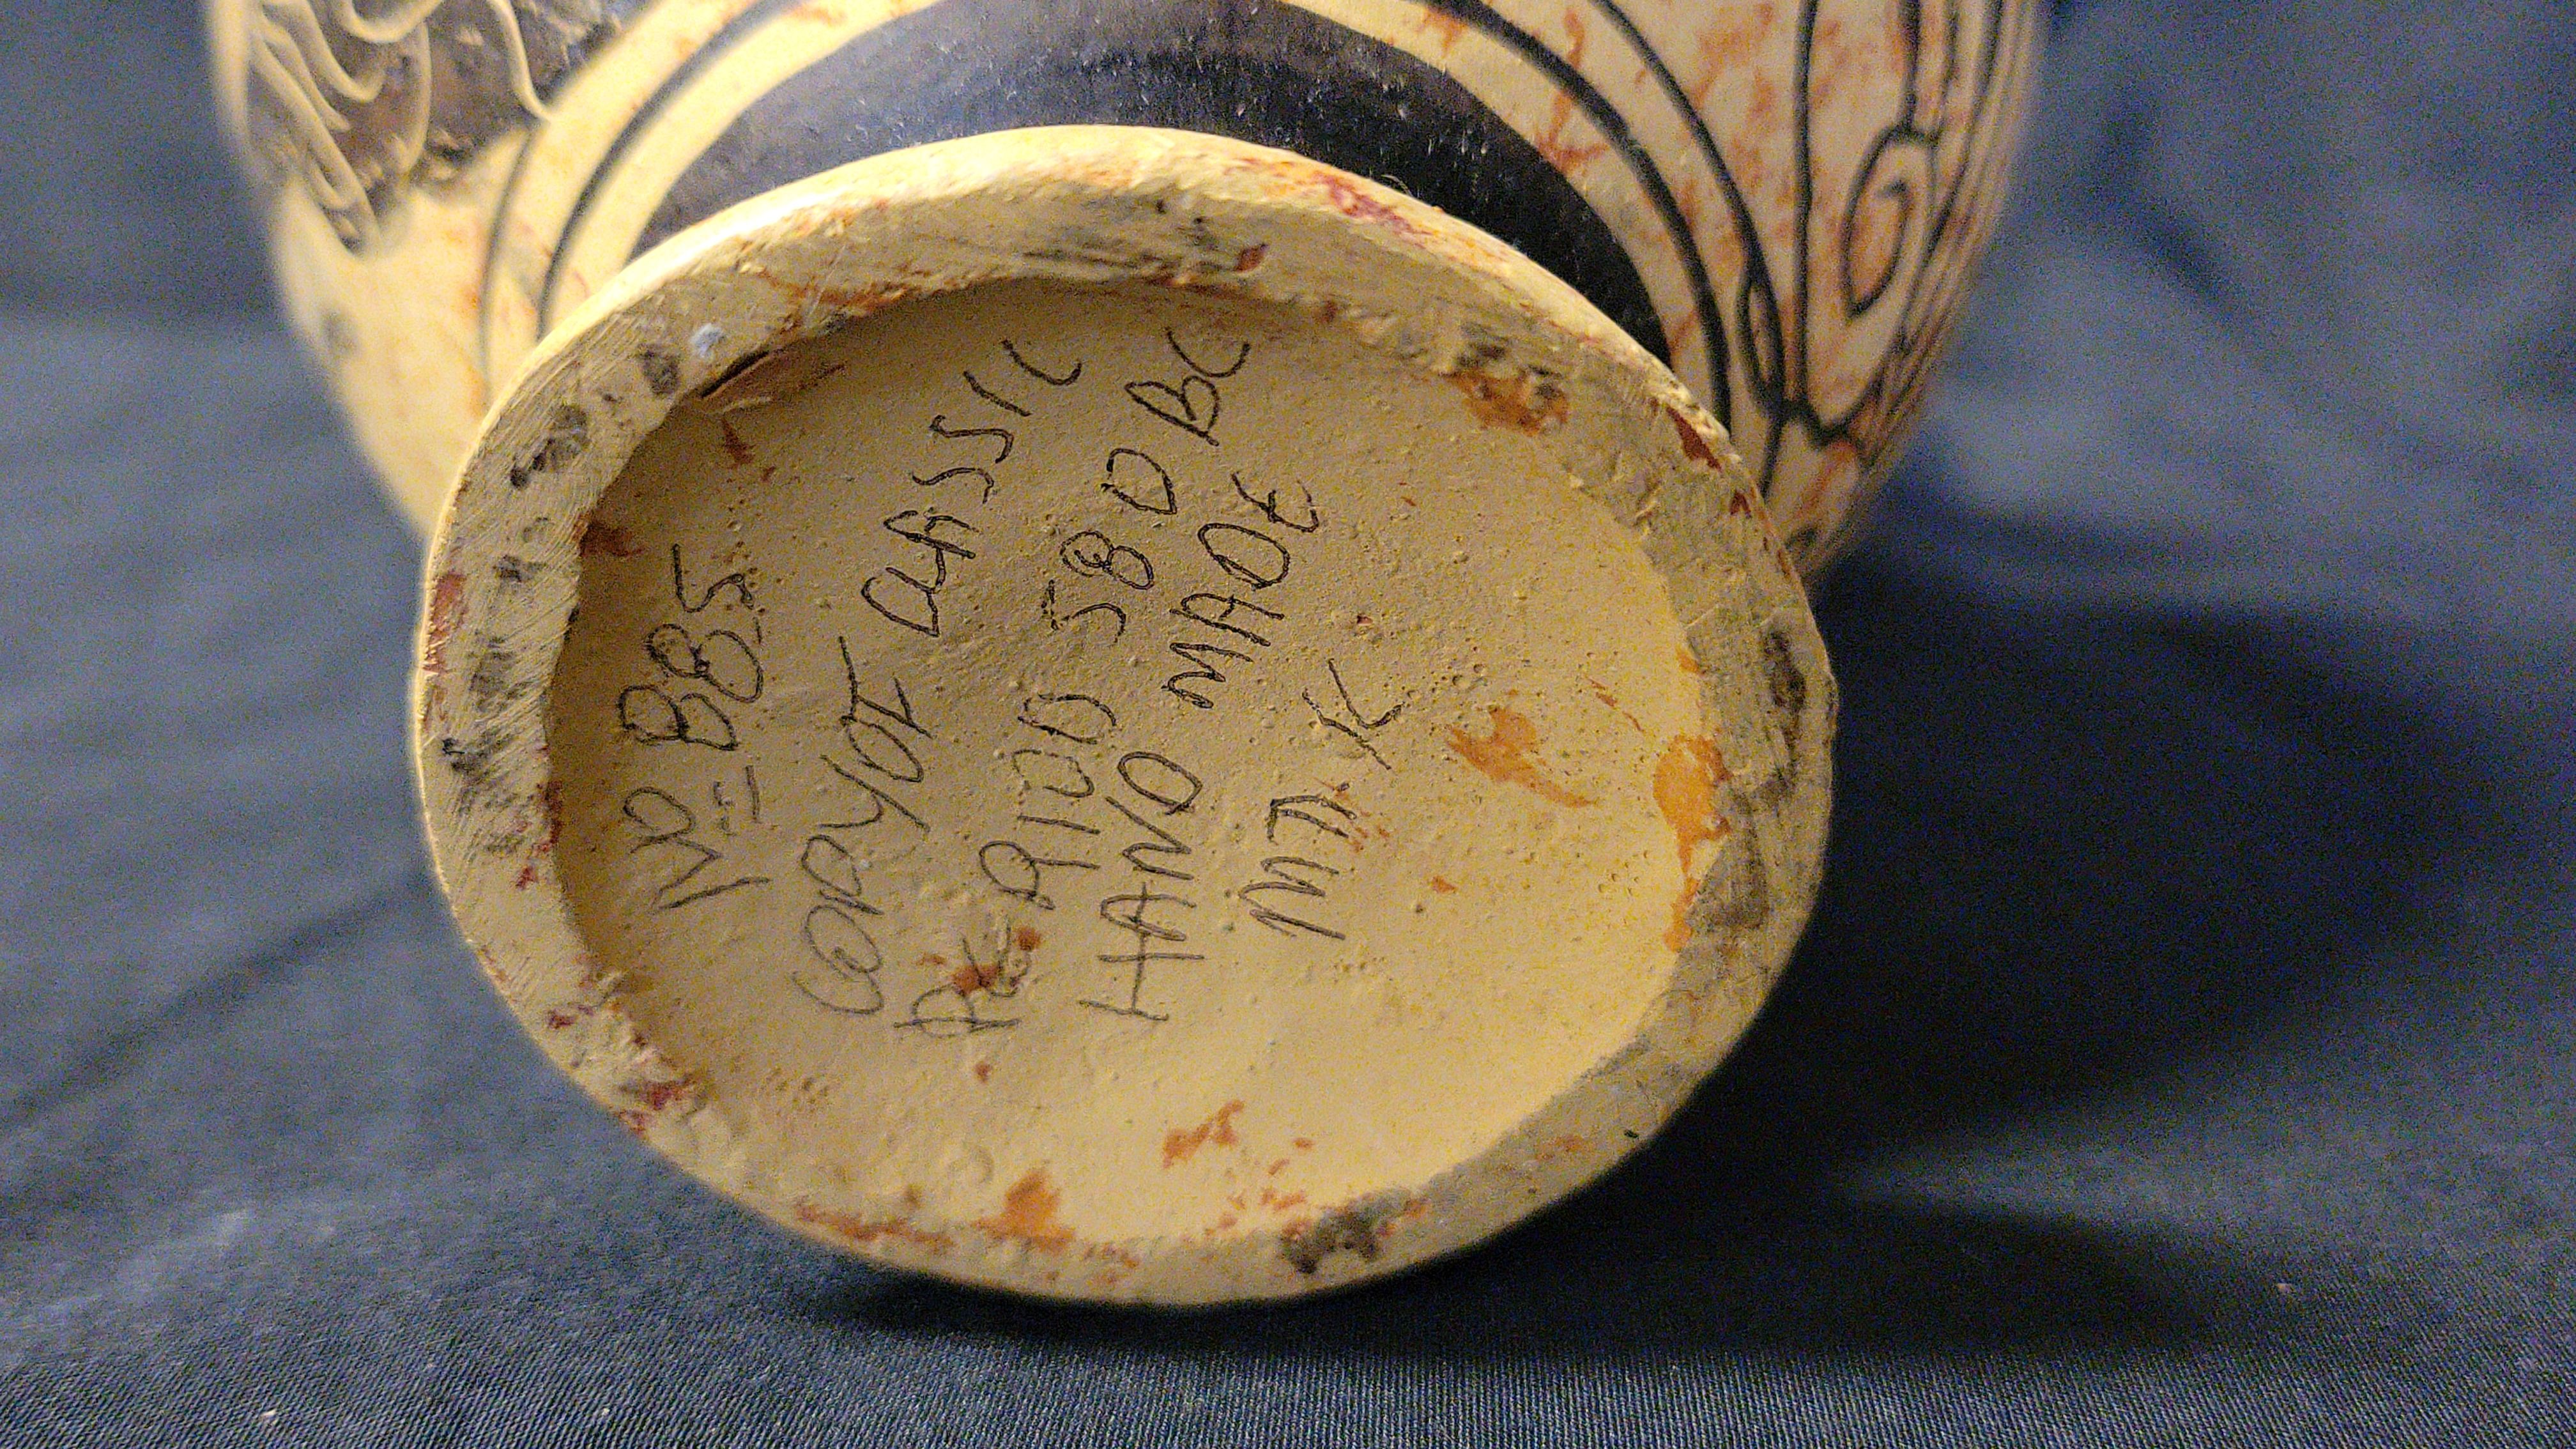 No 885
COPY OF CLASSIC
PERIOD 580 BC
HAND MADE
M Π. K